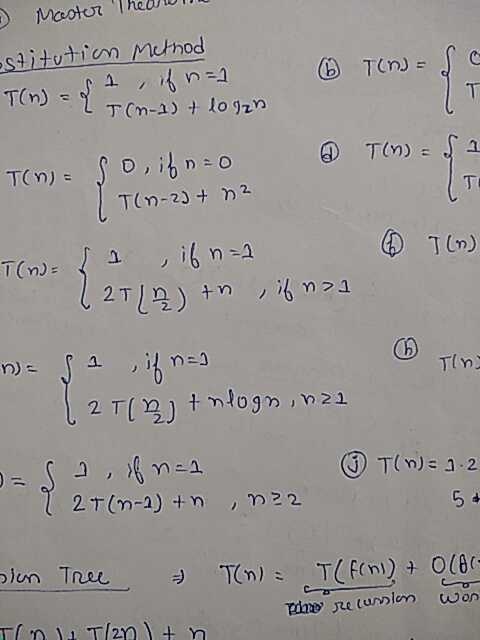 Master Theorem
Substitution Method
T(n) = { 1 , if n=1
T(n-1) + log2n
(b) T(n) = {
T(n) = { 0 , if n=0
T(n-2) + n²
(d) T(n) = { 1
T(n) = { 1 , if n=1
2T(n/2) + n , if n>1
(f) T(n)
n) = { 1 , if n=1
2T(n/2) + nlogn , n≥1
(h) T(n)
) = { 1 , if n=1
2T(n-1) + n , n≥2
(j) T(n) = 1.2
5 +
sion Tree ⇒ T(n) = T(f(n)) + O(
recursion
T(n) + T(2n) + n